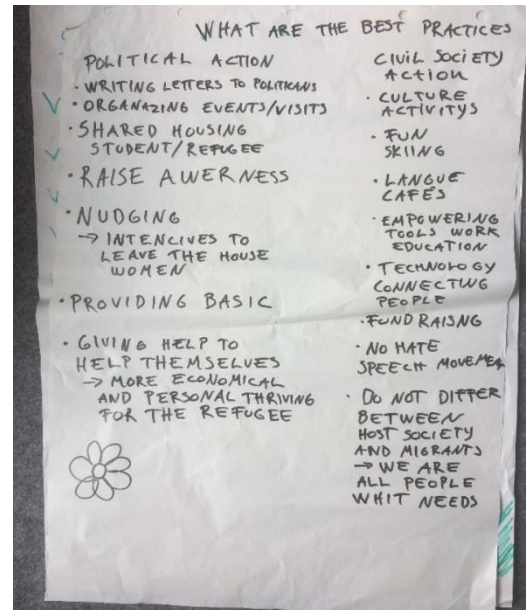 WHAT ARE THE BEST PRACTICES
POLITICAL ACTION
• WRITING LETTERS TO POLITICANS
• ORGANAZING EVENTS/VISITS
• SHARED HOUSING
STUDENT/REFUGEE
• RAISE AWERNESS
• NUDGING
→ INTENCIVES TO
LEAVE THE HOUSE
WOMEN
• PROVIDING BASIC
• GIVING HELP TO
HELP THEMSELVES
→ MORE ECONOMICAL
AND PERSONAL THRIVING
FOR THE REFUGEE
CIVIL SOCIETY
ACTION
• CULTURE
ACTIVITYS
• FUN
SKIING
• LANGUE
CAFÉS
• EMPOWERING
TOOLS WORK
EDUCATION
• TECHNOLOGY
CONNECTING
PEOPLE
• FUND RAISNG
• NO HATE
SPEECH MOVEMENT
• DO NOT DIFFER
BETWEEN
HOST SOCIETY
AND MIGRANTS
→ WE ARE
ALL PEOPLE
WHIT NEEDS